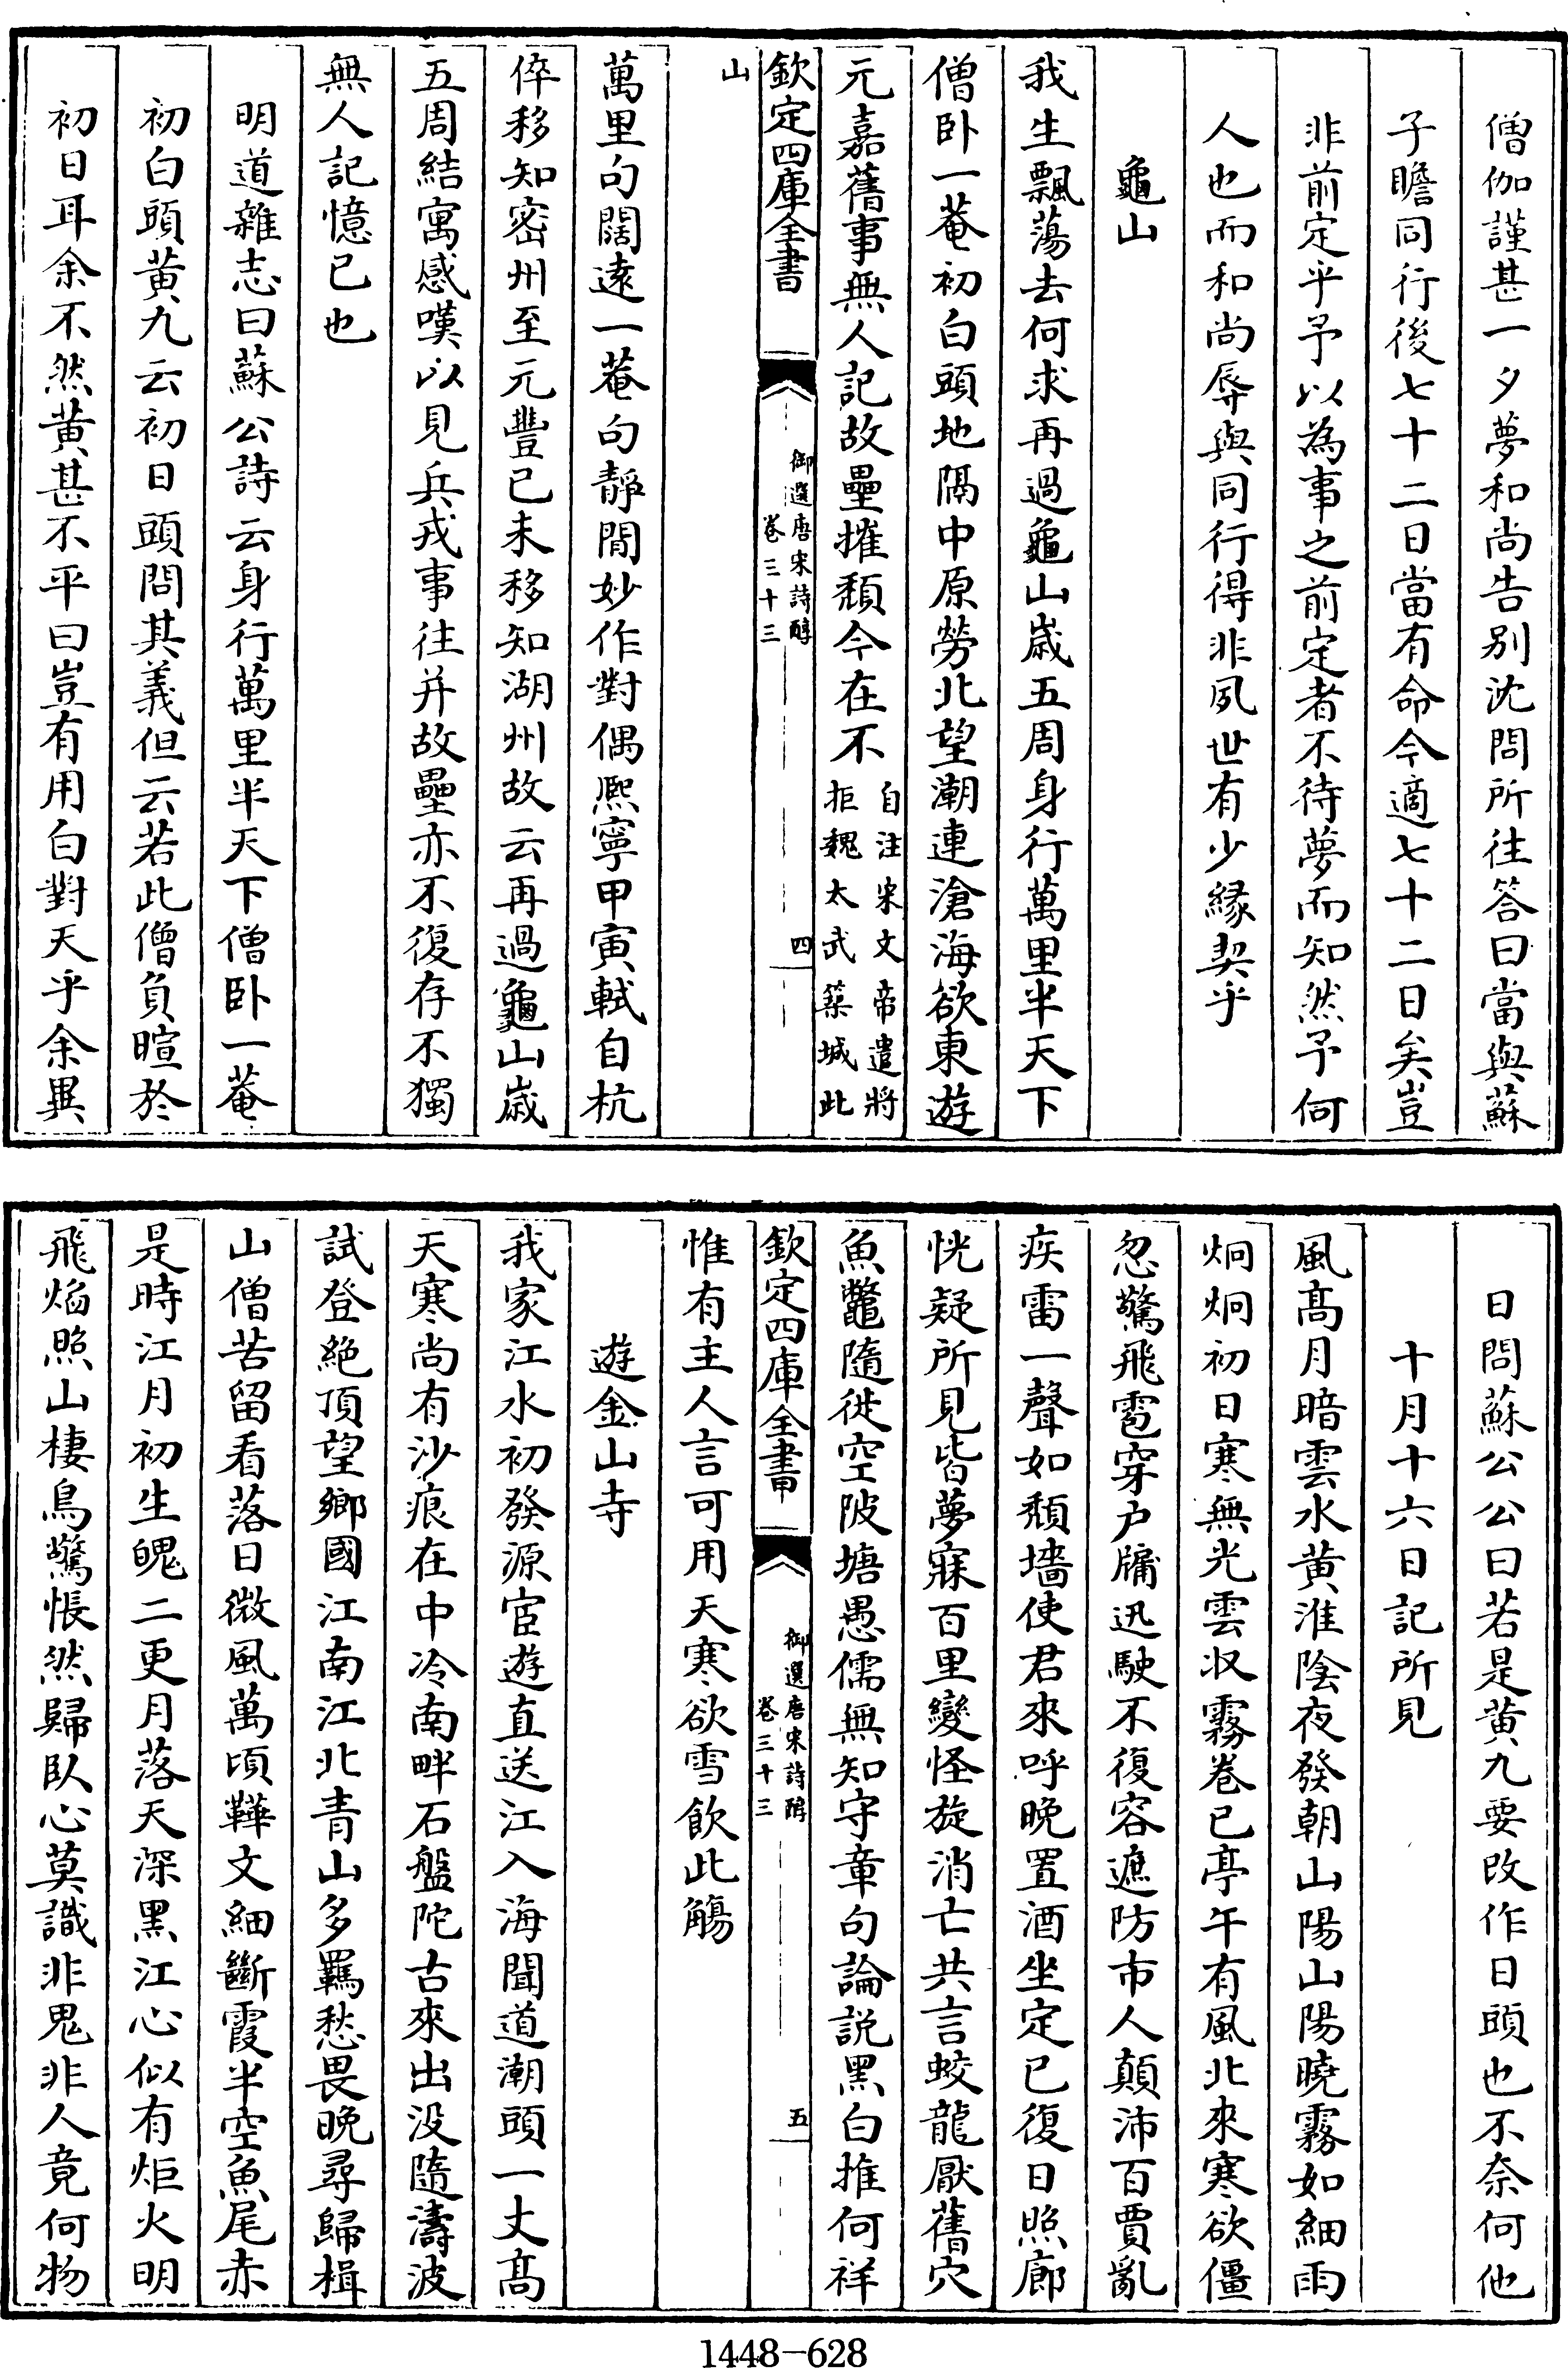 僧伽謹甚一夕夢和尚告别沈問所往答曰當與蘇
子瞻同行後七十二日當有命今適七十二日矣豈
非前定乎予以為事之前定者不待夢而知然予何
人也而和尚辱與同行得非夙世有少緣契乎
龜山
我生飄蕩去何求再過龜山嵗五周身行萬里半天下
僧卧一菴初白頭地隔中原勞北望潮連滄海欲東遊
元嘉舊事無人記故壘摧頽今在不
自注宋文帝遣將
拒魏太武築城此
欽定四庫全書
御選唐宋詩醇
卷三十三
四
山
萬里句闊遠一菴句靜閒妙作對偶熈寧甲寅軾自杭
倅移知密州至元豐已未移知湖州故云再過龜山嵗
五周結寓感嘆以見兵戎事往并故壘亦不復存不獨
無人記憶已也
明道雜志曰蘇公詩云身行萬里半天下僧卧一菴
初白頭黄九云初日頭問其義但云若此僧負暄於
初日耳余不然黄甚不平曰豈有用白對天乎余異
日問蘇公公曰若是黄九要改作日頭也不奈何他
十月十六日記所見
風髙月暗雲水黄淮陰夜發朝山陽山陽曉霧如細雨
炯炯初日寒無光雲収霧卷已亭午有風北來寒欲僵
忽驚飛雹穿户牖迅駛不復容遮防市人顛沛百賈亂
疾雷一聲如頽墻使君來呼晚置酒坐定已復日照廊
恍疑所見皆夢寐百里變怪旋消亡共言蛟龍厭舊穴
魚鼈隨徙空陂塘愚儒無知守章句論説黑白推何祥
欽定四庫全書
御選唐宋詩醇
卷三十三
五
惟有主人言可用天寒欲雪飲此觴
遊金山寺
我家江水初發源宦遊直送江入海聞道潮頭一丈髙
天寒尚有沙痕在中泠南畔石盤陀古來出没隨濤波
試登絶頂望鄉國江南江北青山多羈愁畏晚尋歸楫
山僧苦留看落日微風萬頃鞾文細斷霞半空魚尾赤
是時江月初生魄二更月落天深黑江心似有炬火明
飛焰照山棲鳥驚悵然歸臥心莫識非鬼非人竟何物
1448-628